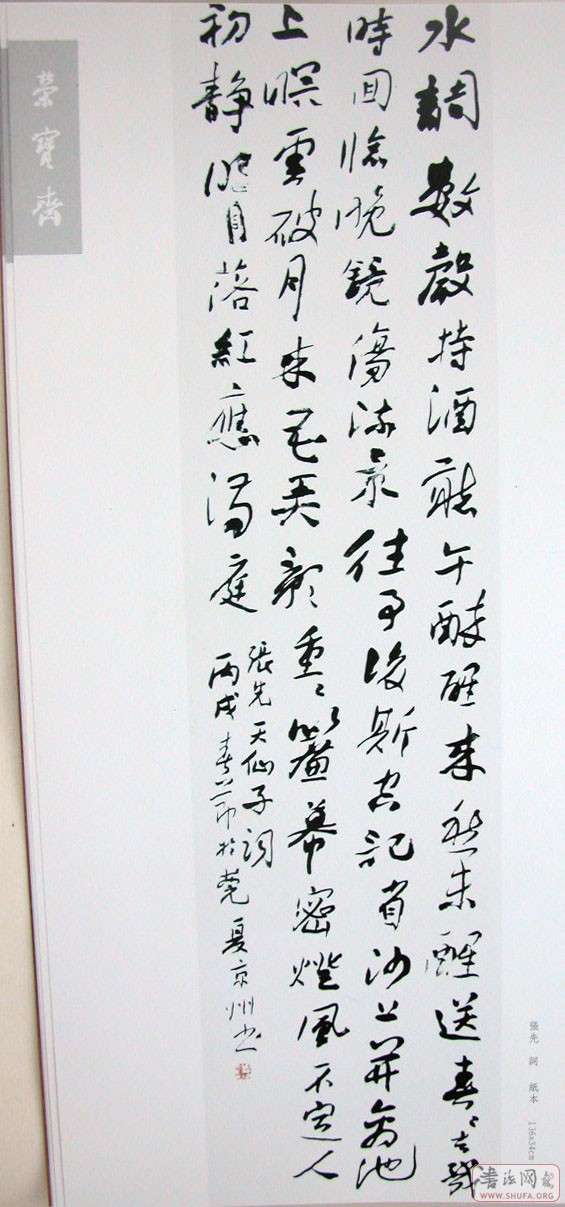 水調數聲持酒聽午醉醒來愁未醒送春〻去幾
時回臨晚鏡傷流景往事後斯空記省沙上并禽池
上暝雲破月來花弄影重〻簾幕密燈風不定人
初靜明日落紅應滿庭
張先天仙子詞
丙戌春節於莞 夏京州书
榮寶齋
張先 詞 紙本 136x34cm
書法网
WWW.SHUFA.ORG